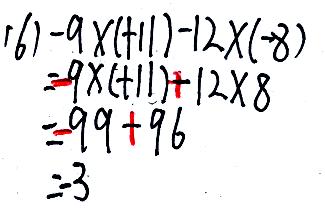 16) -9×(+11)-12×(-8)
=-9×(+11)+12×8
=-99+96
=-3